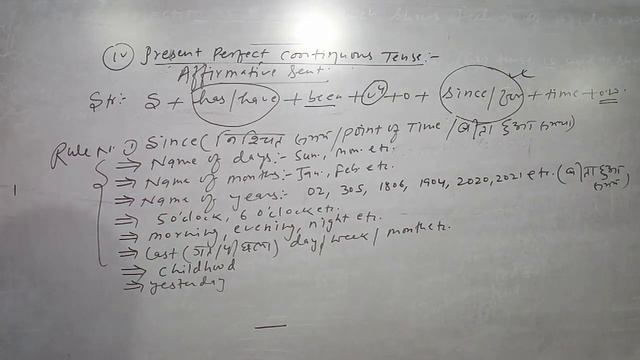 (iv) Present Perfect Continuous Tense:-
Affirmative Sent.
Str:- S + has/have + been + v4 + o + since/for + time + o.w.
Rule N. ① Since (निश्चित समय/point of Time/बीता हुआ समय)
⇒ Name of days:- Sun., mon. etc.
⇒ Name of months:- Jan., Feb. etc.
⇒ Name of years:- 02, 305, 1806, 1904, 2020, 2021 etc. (बीता हुआ समय)
⇒ 5 o'clock, 6 o'clock etc.
⇒ morning, evening, night etc.
⇒ Last (गत/पिछला) day/week/month etc.
⇒ childhood
⇒ yesterday